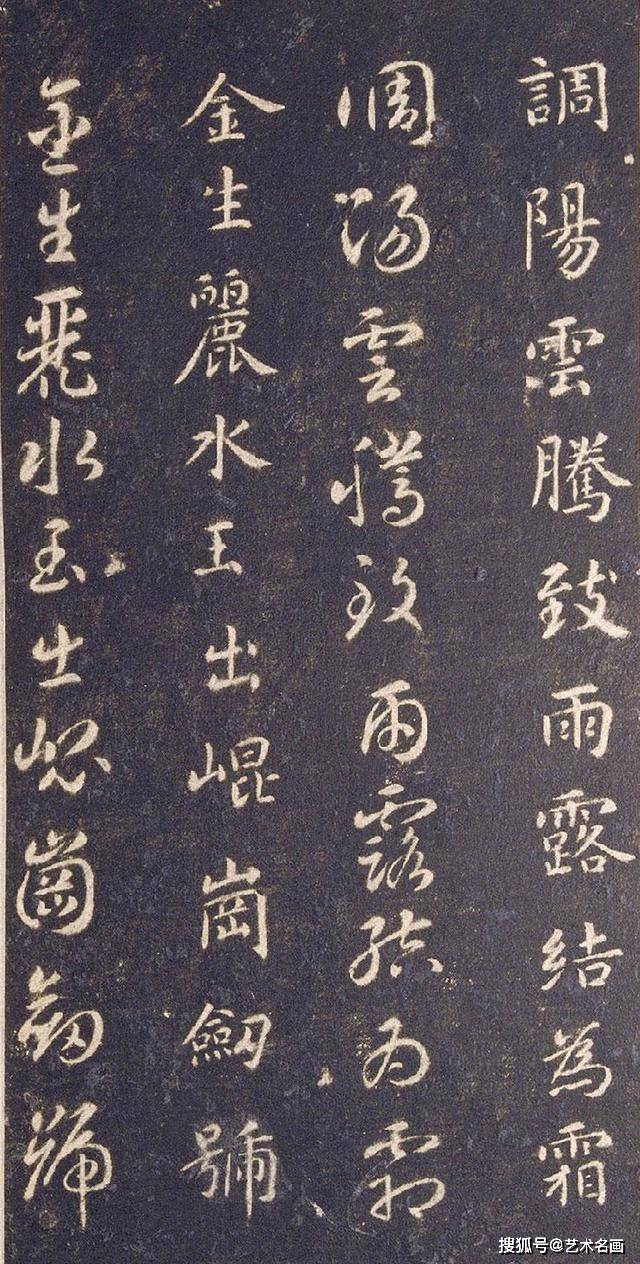 調陽雲騰致雨露結為霜
調陽雲騰致雨露結為霜
金生麗水玉出崐崗劔號
金生麗水玉出崐崗劔號
搜狐号@艺术名画